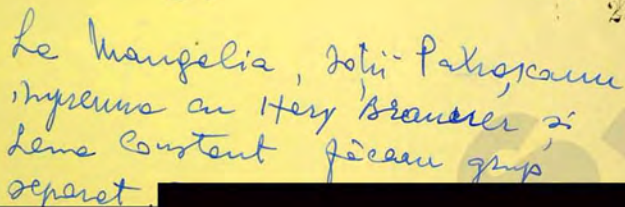 La Mangalia, soții Patrașcanu
împreuna cu Hery Brauner și
Lena Constant făceau grup
separat.